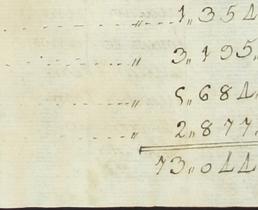 " 1,,354
" 3,,195.
" 5,,684.
" 2,,877.
73,,044